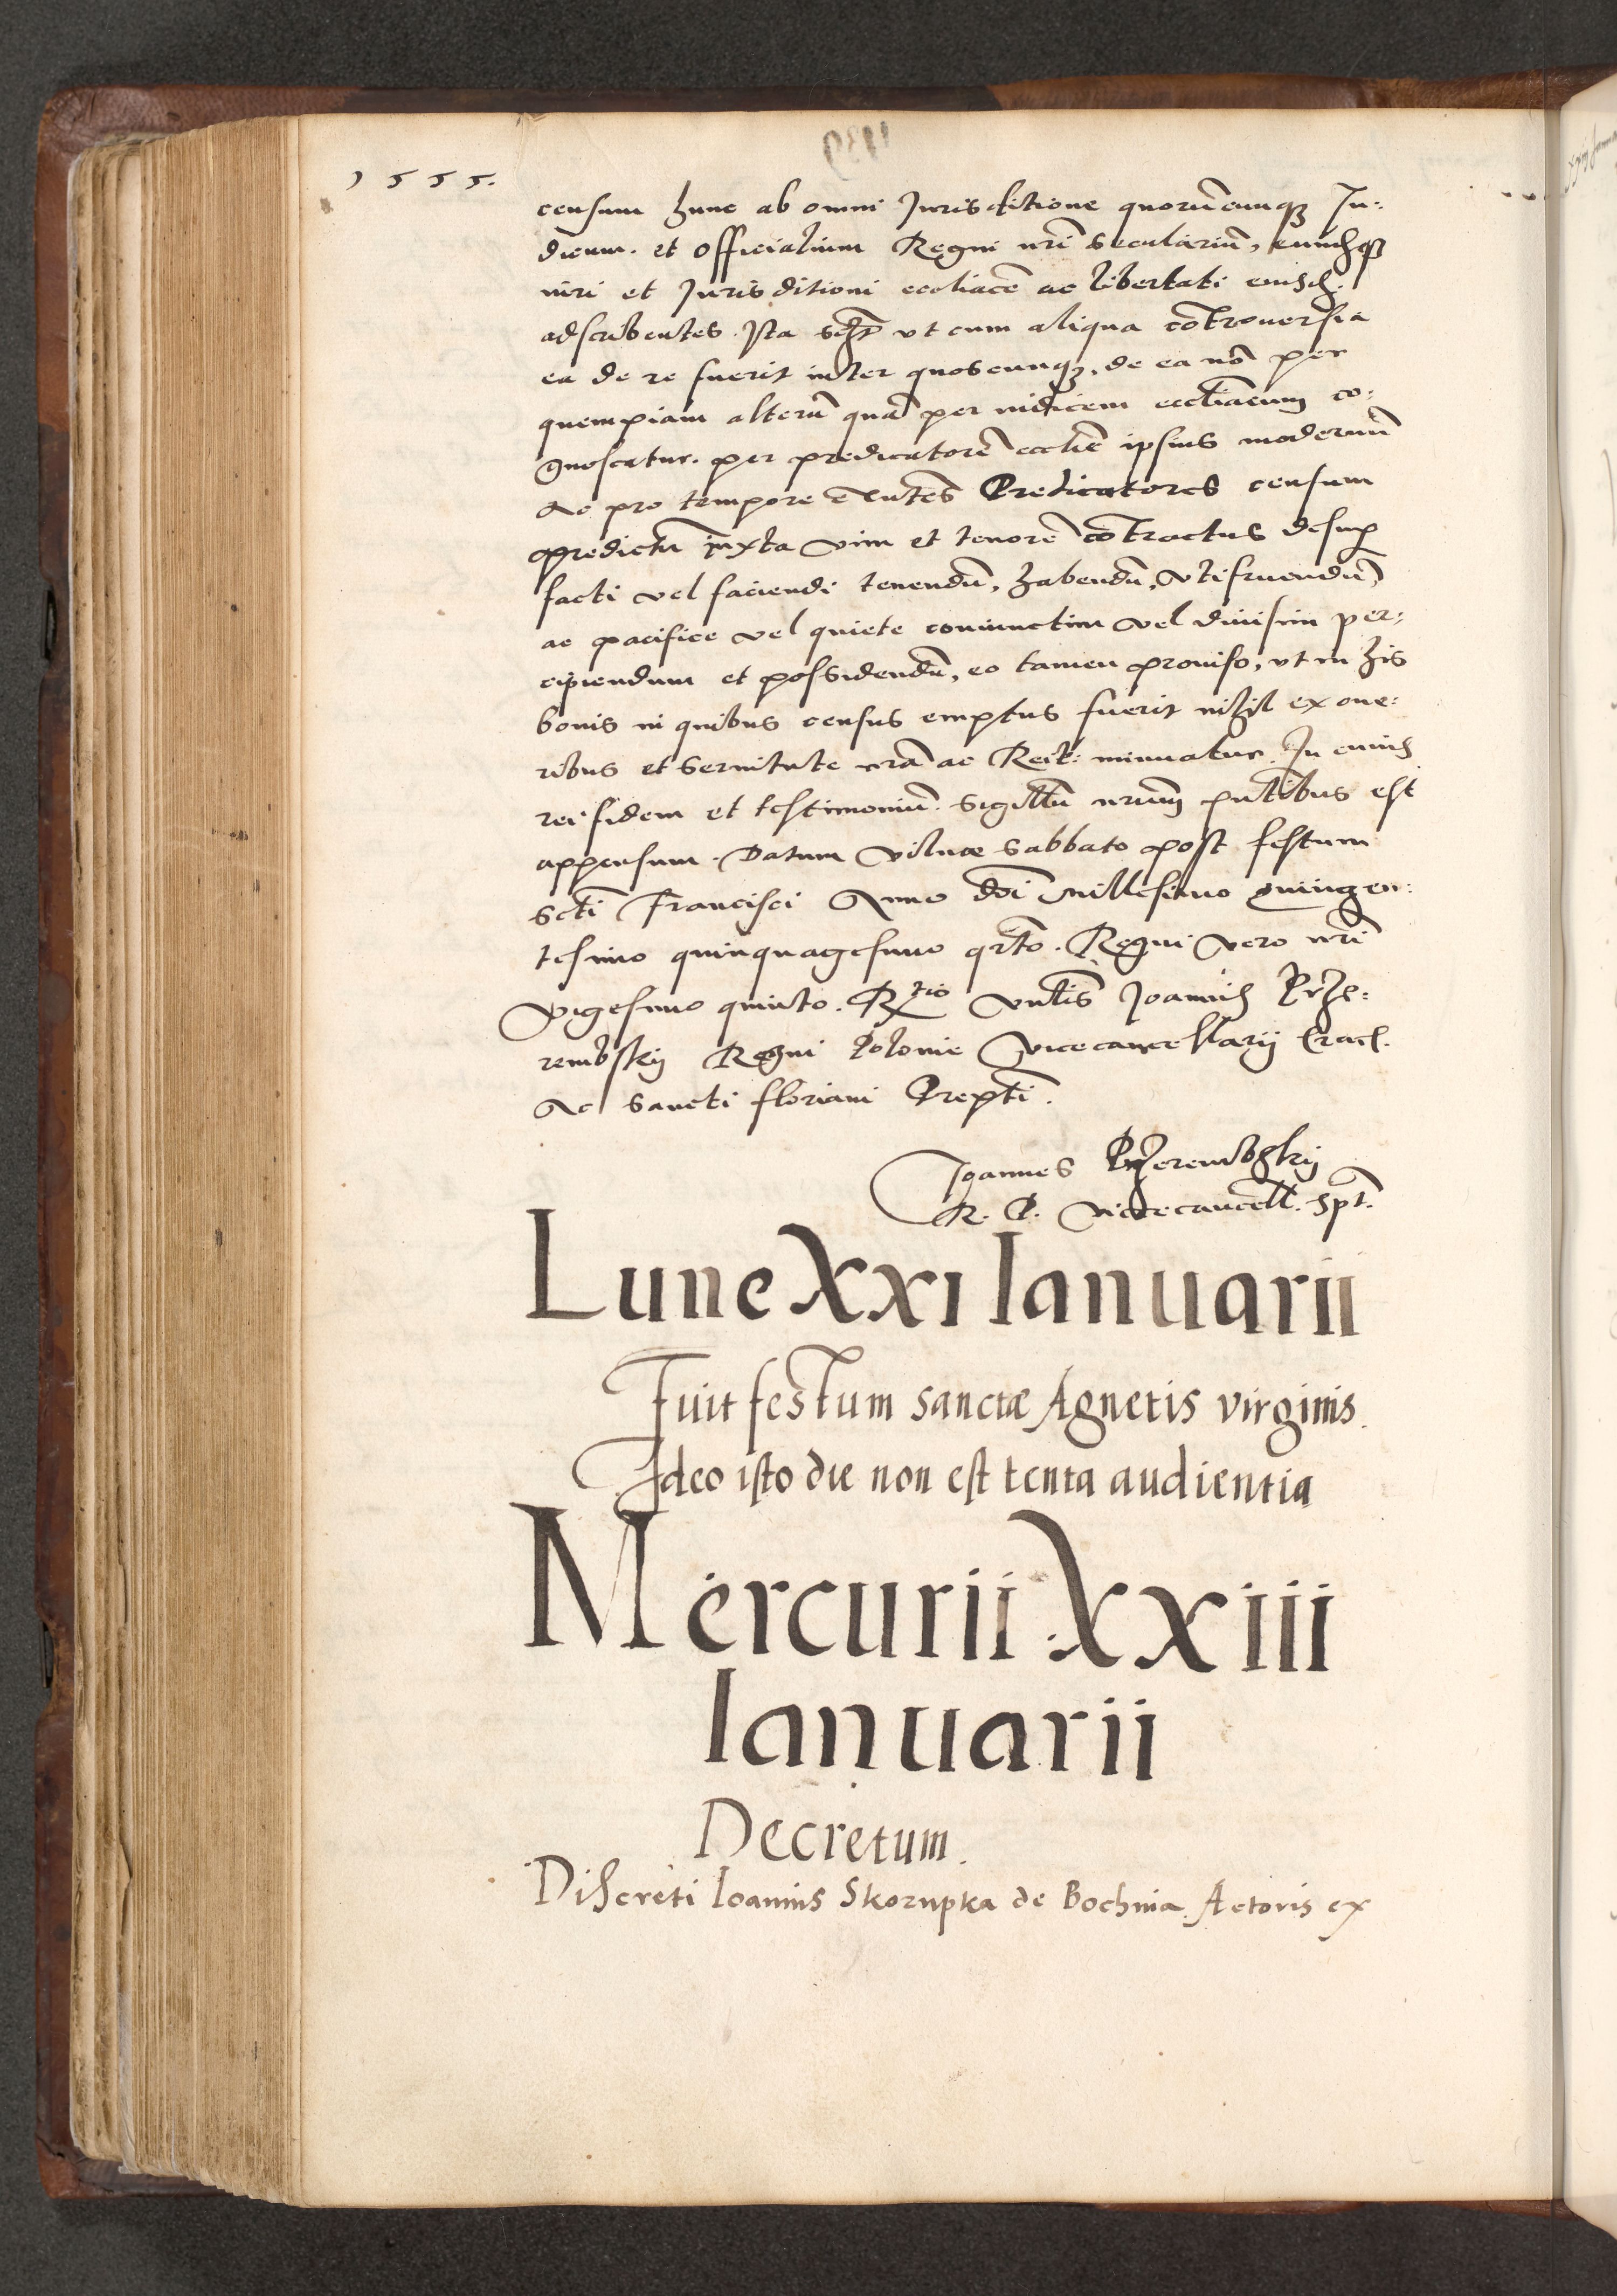 1555.
censum hunc ab omni Jurisditione quorūcunq₃ Ju:
dicum. et officialium Regni nr̄i seculariū, eundēq₃
iuri et Jurisditioni eccl̄iacē ac libertati eiusd.
adscribentes. Ita vt cum aliqua cōtrouersia
ea de re fuerit inter quoscunq₃, de ea nō per
quempiam alterū quā per iudicem eccl̄iacum co:
gnoscatur. per predicatorē eccl̄ie ipsius modernū
Ac pro tempore exn̄tes Predicatores censum
predictū iuxta vim et tenorē cōtractus desup
facti vel faciendi tenendū, habendū, vtifruendū,
ac pacifice vel quiete coniunctim vel diuisim per:
cipiendum et possidendū, eo tamen prouiso, vt in his
bonis in quibus census emptus fuerit nihil ex one:
ribus et seruitute nr̄a ac Reik: minuatur. In cuius
rei fidem et testimoniū. Sigillū nr̄um pn̄tibus est
appensum. Datum Vilnae Sabbato post festum
Scti Francisci Anno dn̄i Millesimo quingen:
tesimo quinquagesimo qrto. Regni vero nr̄i
vigesimo quinto. Rtio Vn̄lis Joannis Prze:
rembskÿ Regni Polonie Vicecancellarij Crac.
Ac Sancti Floriani Prepti.
Joannes Przerembskÿ
R. P. vicecancell. spt.
Lune XXI Ianuarii
Fuit festum sanctæ Agnetis virginis.
Ideo isto die non est tenta audientia
Mercurii XXiii
Ianuarii
Decretum.
Discreti Ioannis Skorupka de Bochnia Actoris ex